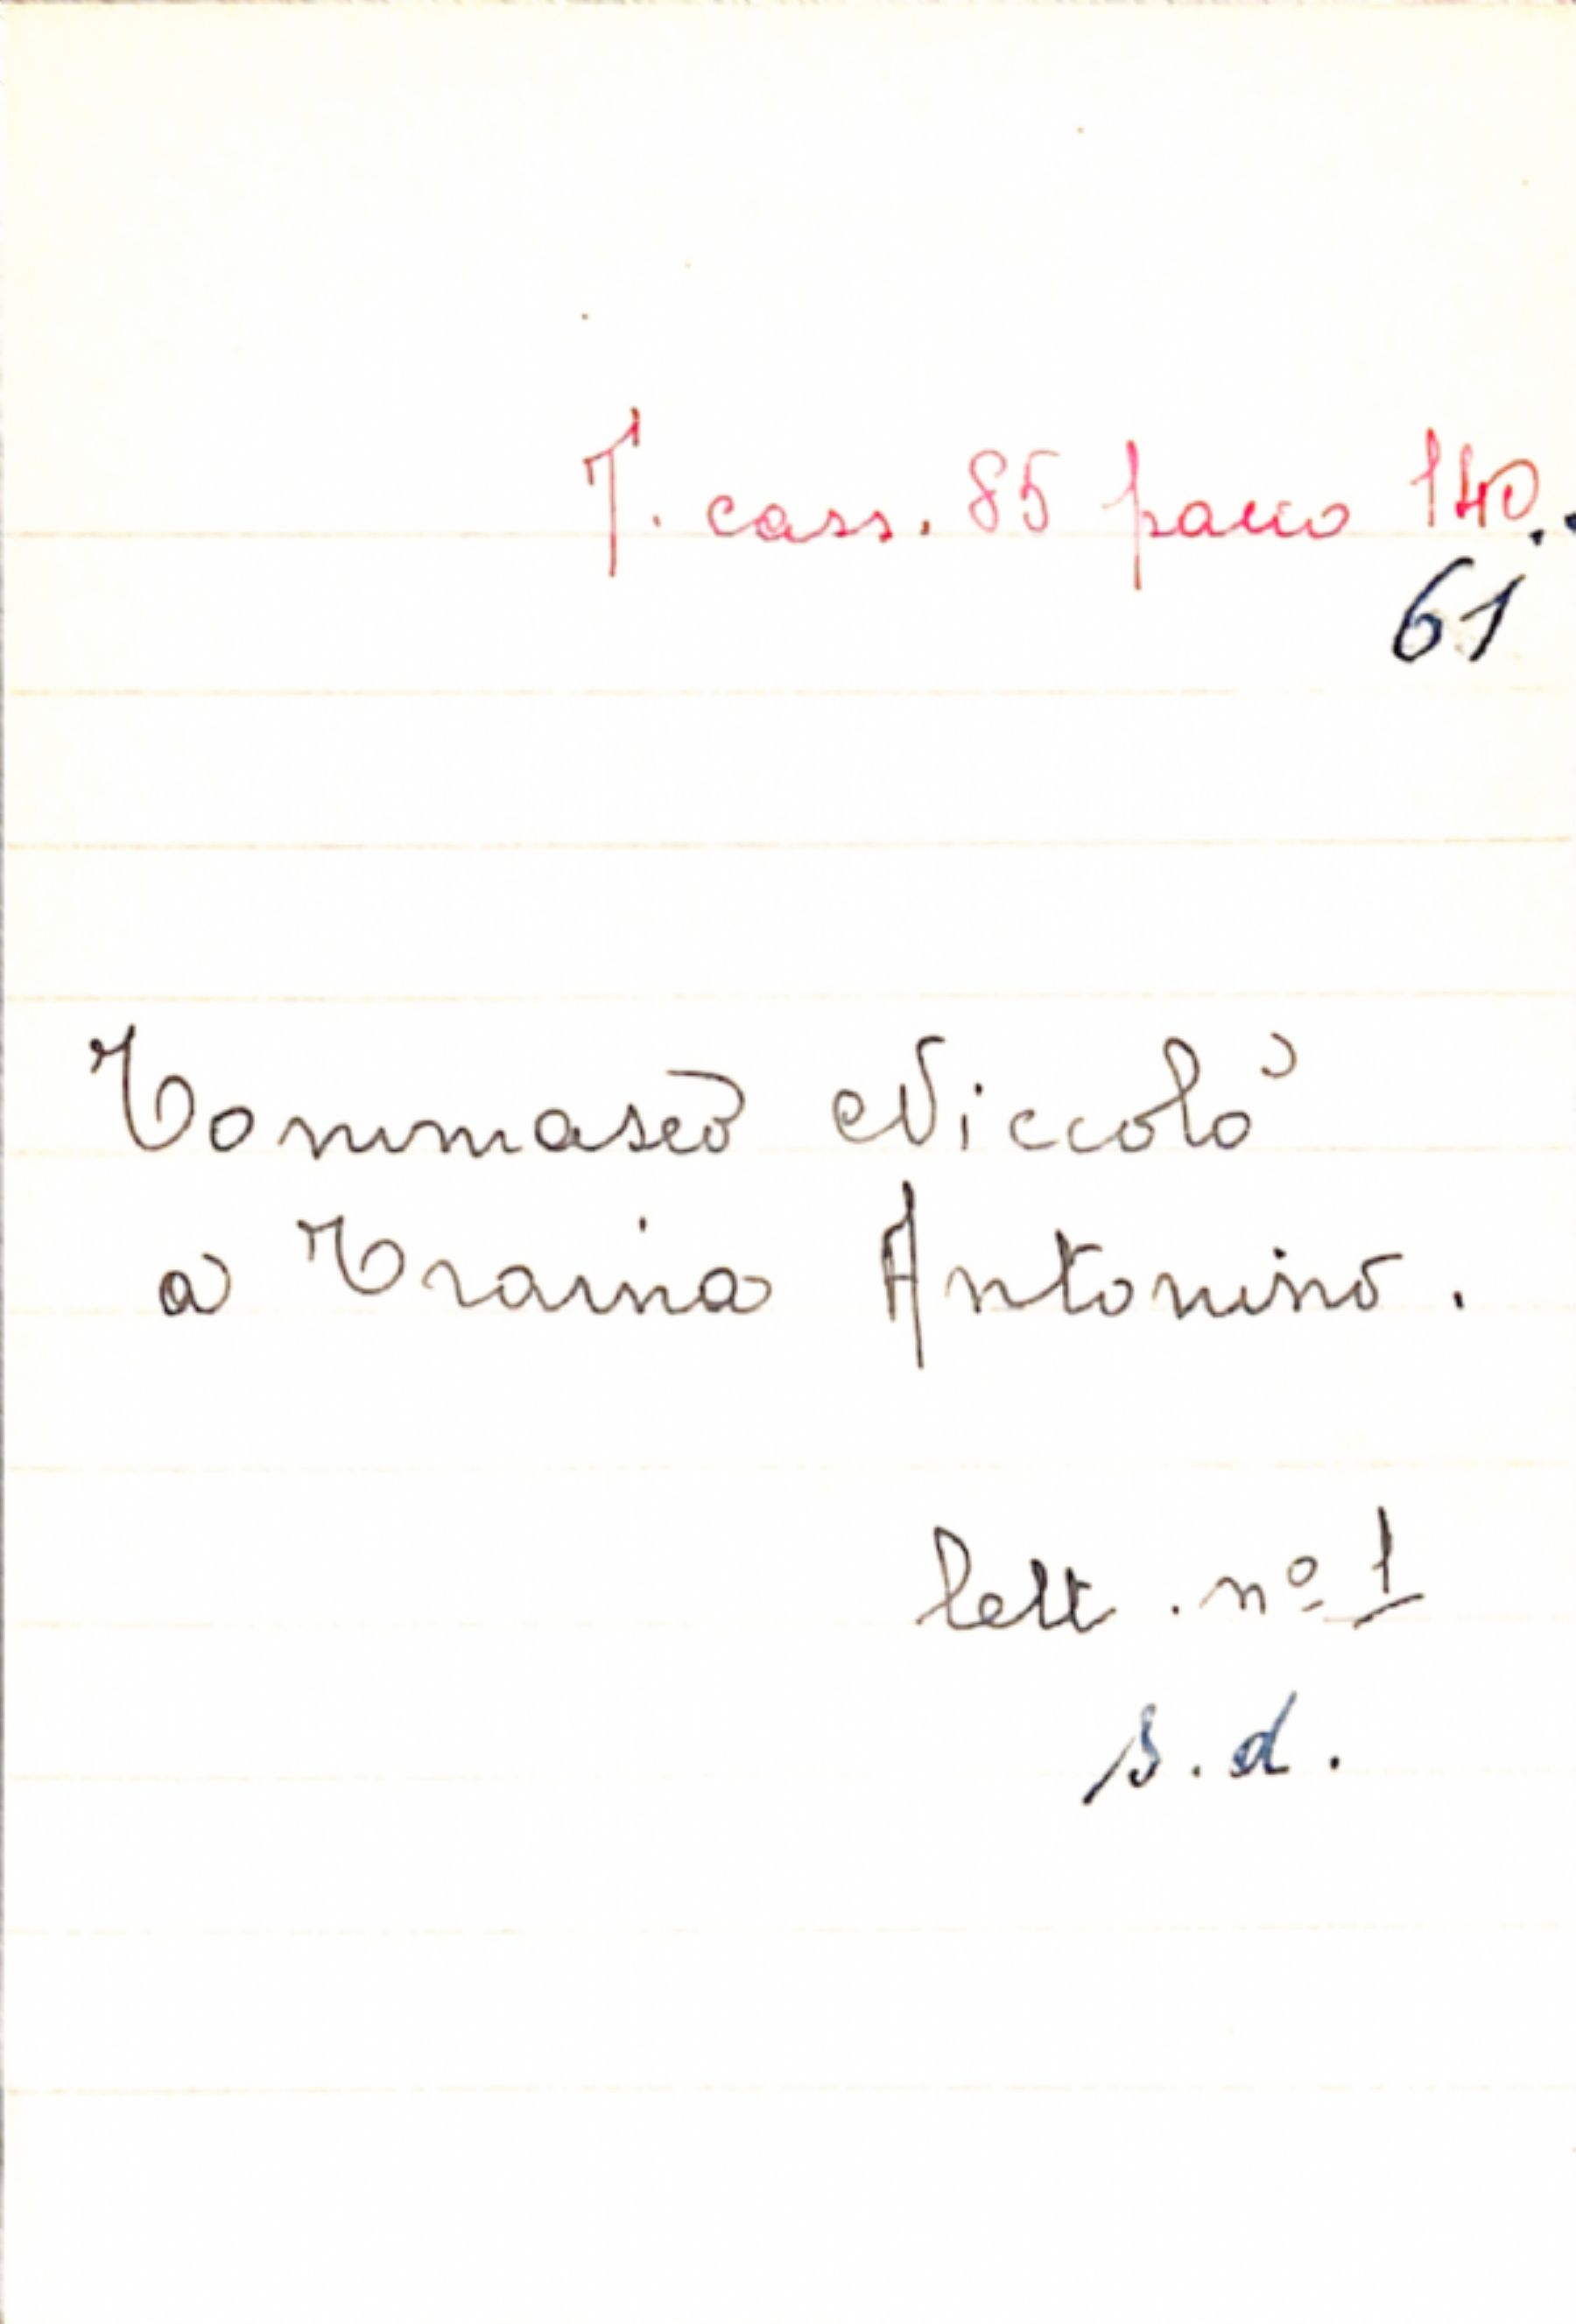 T. cass. 85 pacco 140.
61
Tommaseo Niccolò
a Traina Antonino.
lett. nº 1
s. d.